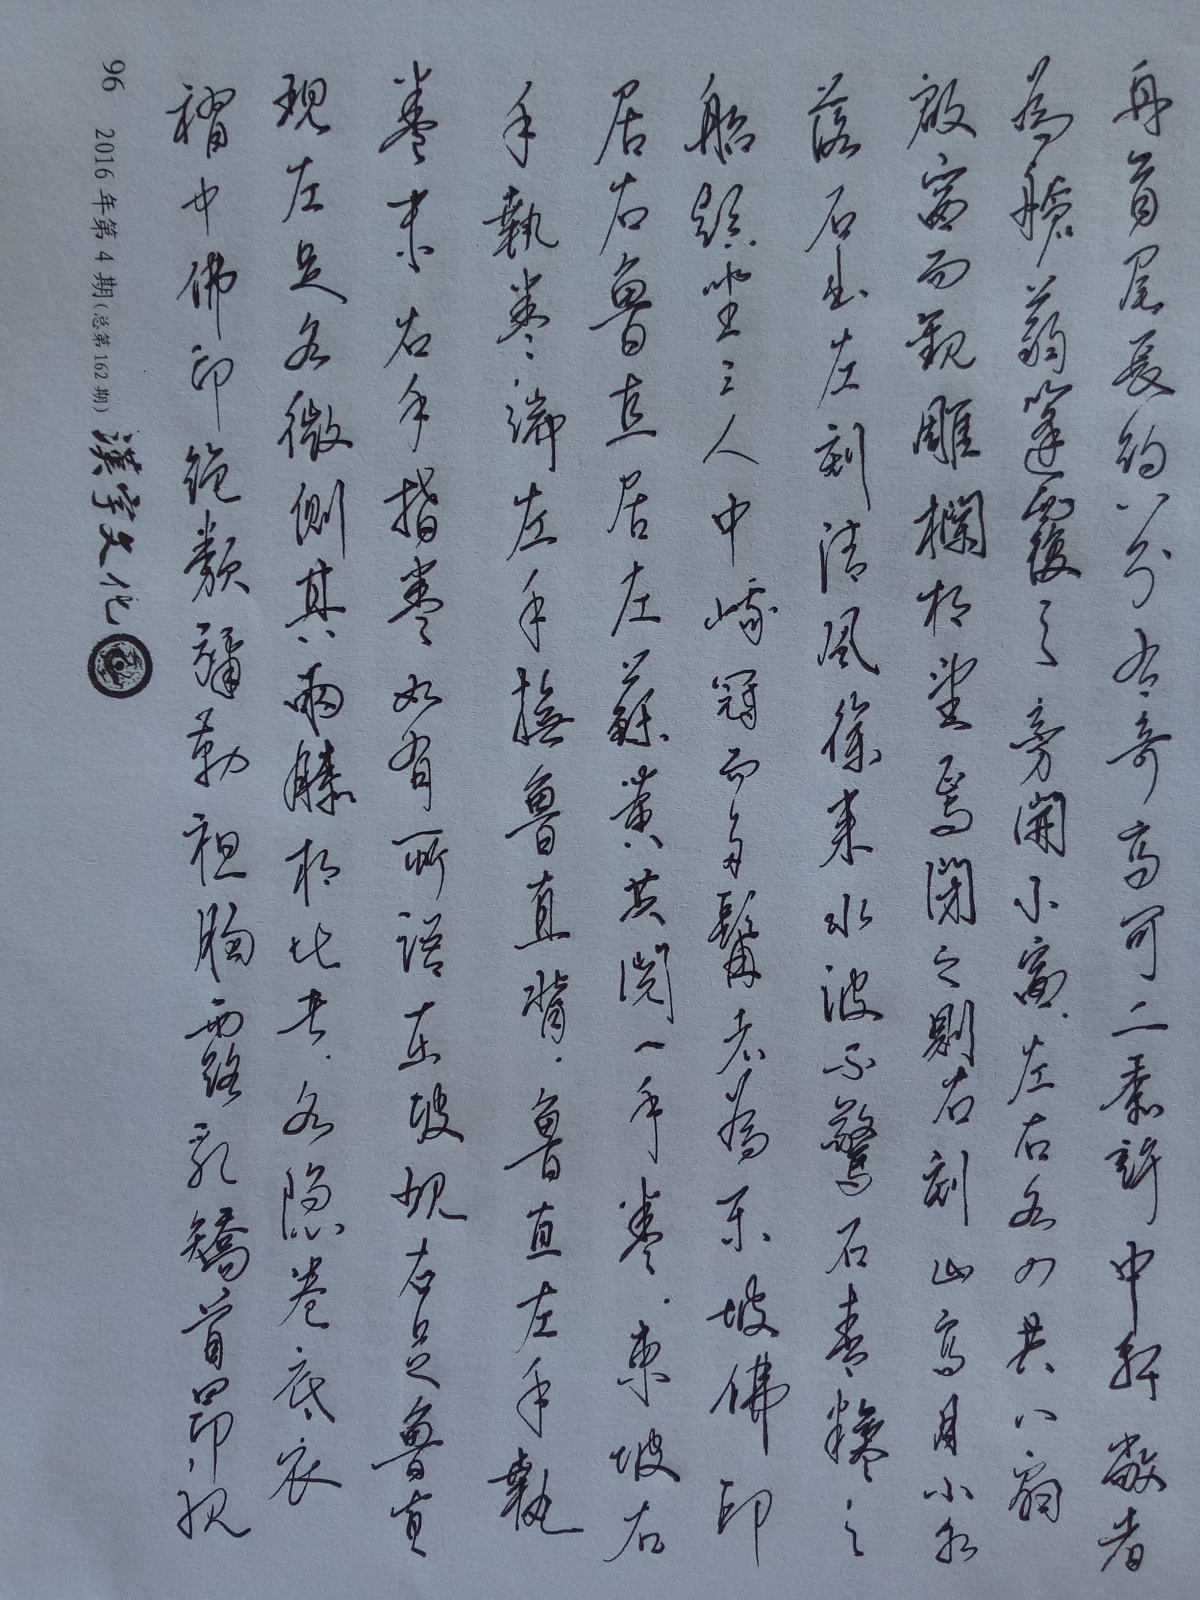 舟首尾長約八分有奇高可二黍許中軒敞者
為艙蒻篷覆之旁開小窗左右各四共八扇
啟窗而觀雕欄相望焉閉之則右刻山高月小水
落石出左刻清風徐來水波不驚石青糝之
船頭坐三人中峨冠而多髯者為東坡佛印
居右魯直居左蘇黄共閲一手卷東坡右
手執卷端左手撫魯直背魯直左手執
卷末右手指卷如有所語東坡現右足魯直
現左足各微側其兩膝相比者各隐卷底衣
褶中佛印絶類彌勒袒胸露乳矯首昂視
96 2016年第4期(总第162期) 漢字文化